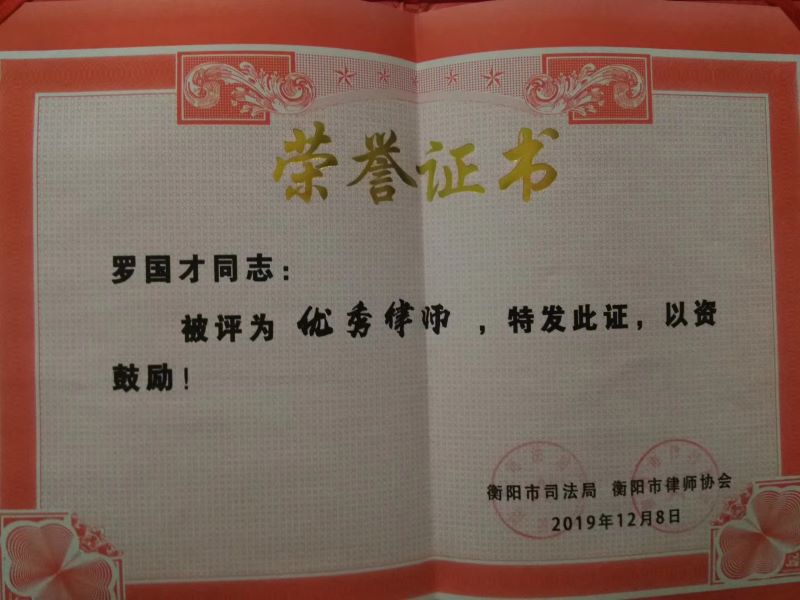 荣誉证书
罗国才同志：
被评为 优秀律师 ，特发此证，以资
鼓励！
衡阳市司法局 衡阳市律师协会
2019年12月8日